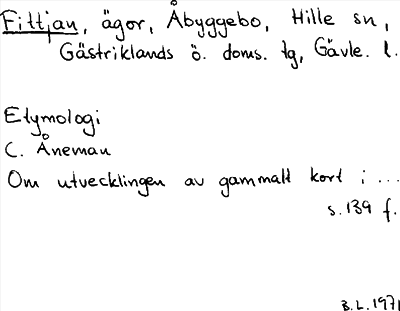 Fittjan, ägor, Åbyggebo, Hille sn,
Gästriklands ö. doms. tg, Gävle. l.
Etymologi
C. Åneman
Om utvecklingen av gammalt kort i ...
s. 139 f.
B.L. 1971